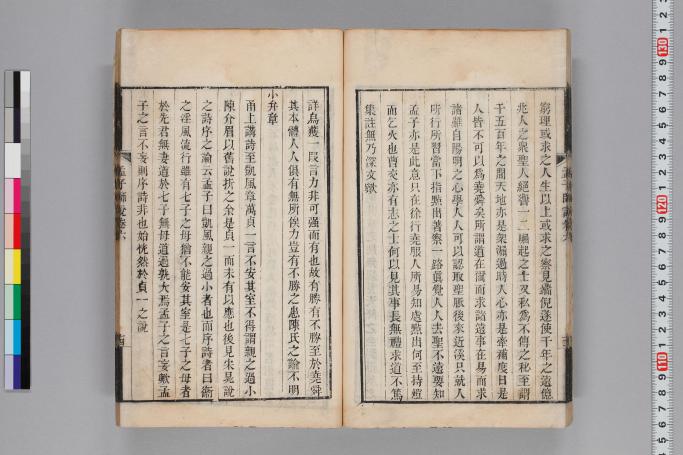 窮理或求之人生以上或求之察見端倪遂使千年之遠億
兆人之衆聖人絕響一二崛起之士又私為不傳之秘至謂
千五百年之間天地亦是架漏過時人心亦是牽補度日是
人皆不可以為堯舜矣所謂道在邇而求諸遠事在易而求
諸難自陽明之心學人人可以認取聖脈後來近溪只就人
所行所習當下指點出著察一路真覺人人去聖不遠要知
孟子亦是此意只在徐行堯服人所易知處點出何至持燈
而乞火也曹交亦有志之士何以見其事長無禮求道不篤
集註無乃深文歟
詳烏獲一段言力非可強而有也故有勝有不勝至於堯舜
其本體人人俱有無所俟力豈有不勝之患陳氏之論不明
小弁章
甬上講詩至凱風章萬貞一言不安其室不得謂親之過小
陳介眉以舊說折之余是貞一而未有以應也後見朱晃說
之詩序之論云孟子曰凱風親之過小者也而序詩者曰衛
之淫風流行雖有七子之母猶不能安其室是七子之母者
於先君無妻道於七子無母道過孰大焉孟子之言妄歟孟
子之言不妄則序詩非也始恍然於貞一之說
孟子師說卷六